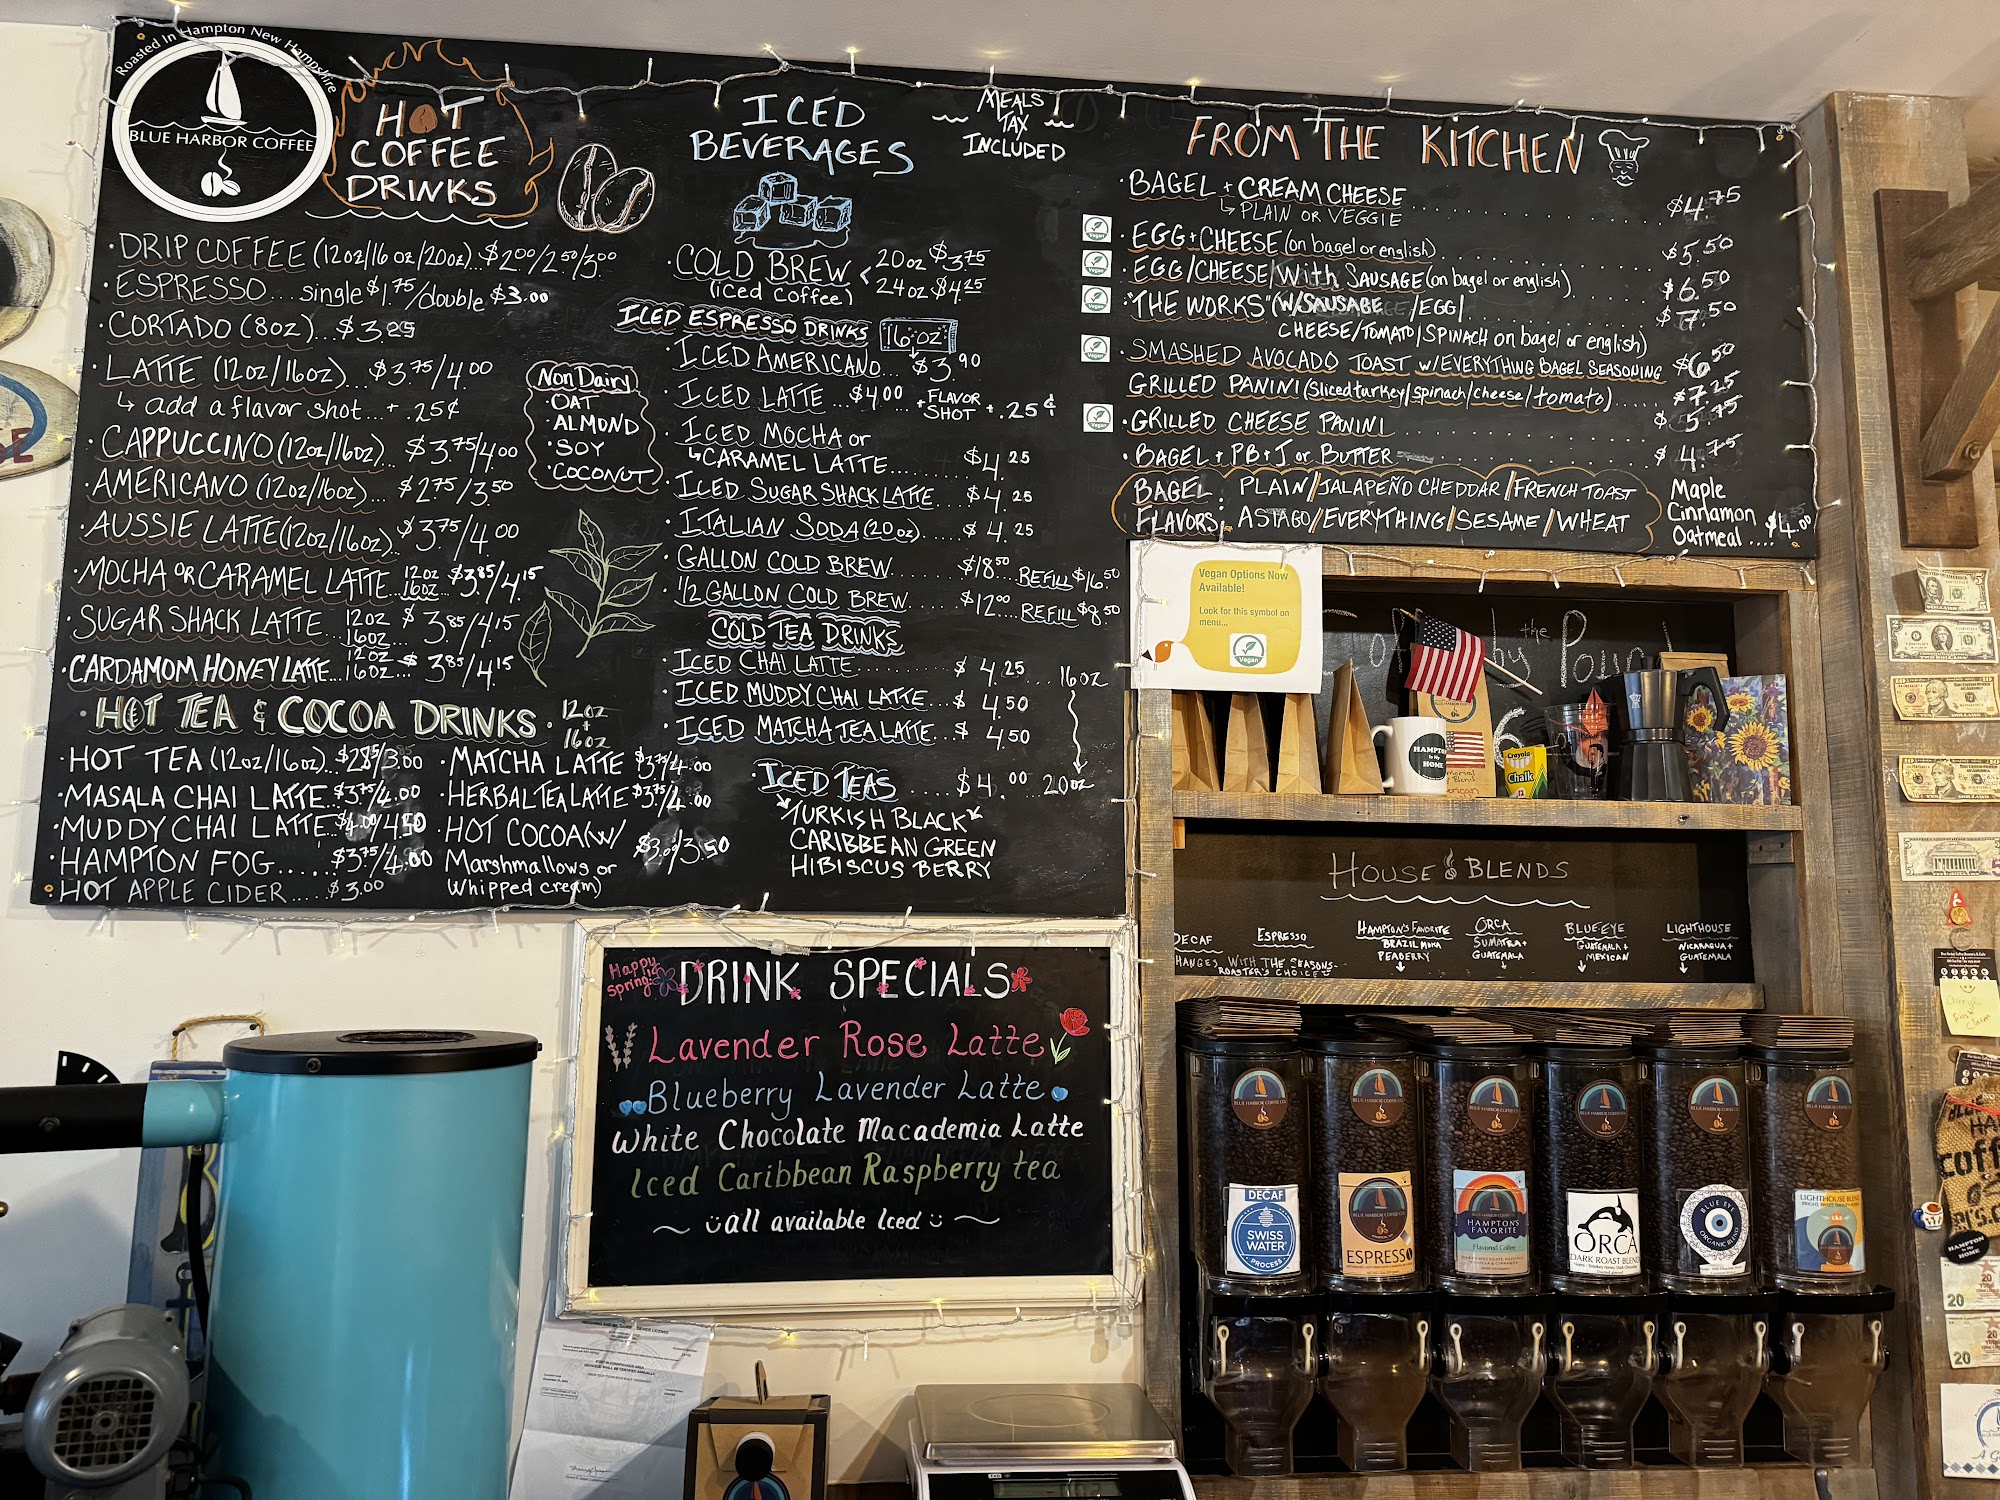 Roasted In Hampton New Hampshire
BLUE HARBOR COFFEE
HOT
COFFEE
DRINKS
· DRIP COFFEE (12oz/16oz/20oz)... $2.00/2.50/3.00
· ESPRESSO.... single $1.75/double $3.00
· CORTADO (8oz)... $3.25
· LATTE (12oz/16oz)... $3.75/4.00
↳ add a flavor shot...+ .25¢
· CAPPUCCINO (12oz/16oz)... $3.75/4.00
· AMERICANO (12oz/16oz)... $2.75/3.50
· AUSSIE LATTE (12oz/16oz).. $3.75/4.00
· MOCHA OR CARAMEL LATTE 12oz 16oz.. $3.85/4.15
· SUGAR SHACK LATTE 12oz 16oz... $3.85/4.15
· CARDAMOM HONEY LATTE 12oz 16oz... $3.85/4.15
Non Dairy
· OAT
· ALMOND
· SOY
· COCONUT
· HOT TEA & COCOA DRINKS · 12oz + 16oz
· HOT TEA (12oz/16oz)...
· MASALA CHAI LATTE.. $3.75/4.00
· MUDDY CHAI LATTE... $4.00/4.50
· HAMPTON FOG...... $3.75/4.00
· HOT APPLE CIDER..... $3.00
· MATCHA LATTE $3.75/4.00
· HERBAL TEA LATTE $3.75/4.00
· HOT COCOA (W/
Marshmallows or
Whipped cream)
$3.00/3.50
ICED
BEVERAGES
MEALS
TAX
INCLUDED
· COLD BREW < 20oz $3.75
(iced coffee) 24oz $4.25
ICED ESPRESSO DRINKS 16 oz
· ICED AMERICANO... $3.90
· ICED LATTE ... $4.00 + FLAVOR SHOT + .25¢
· ICED MOCHA or
↳ CARAMEL LATTE...... $4.25
· ICED SUGAR SHACK LATTE... $4.25
· ITALIAN SODA (20oz)..... $4.25
· GALLON COLD BREW....... $18.50 REFILL $16.50
· 1/2 GALLON COLD BREW..... $12.00... REFILL $8.50
COLD TEA DRINKS
· ICED CHAI LATTE......... $4.25 ... 16oz
· ICED MUDDY CHAI LATTE... $4.50
· ICED MATCHA TEA LATTE... $4.50
· ICED TEAS ..... $4.00 20oz
TURKISH BLACK
CARIBBEAN GREEN
HIBISCUS BERRY
FROM THE KITCHEN
· BAGEL + CREAM CHEESE $4.75
↳ PLAIN OR VEGGIE
Vegan
· EGG + CHEESE (on bagel or english) $5.50
Vegan
· EGG/CHEESE/With SAUSAGE (on bagel or english) $6.50
Vegan
· "THE WORKS" (W/SAUSAGE /EGG/ $7.50
CHEESE/TOMATO/SPINACH on bagel or english)
Vegan
· SMASHED AVOCADO TOAST W/EVERYTHING BAGEL SEASONING $6.50
GRILLED PANINI (Sliced turkey/spinach/cheese/tomato)..... $7.25
· GRILLED CHEESE PANINI $5.75
· BAGEL + PB + J or BUTTER $4.75
BAGEL: PLAIN/JALAPEÑO CHEDDAR/FRENCH TOAST
FLAVORS: ASIAGO/EVERYTHING/SESAME/WHEAT
Maple
Cinnamon
Oatmeal .... $4.00
Vegan Options Now
Available!
Look for this symbol on
menu...
Vegan
by the Pound
HAMPTON
is My
HOME
Crayola
Chalk
HOUSE BLENDS
DECAF
ESPRESSO
HANGES WITH THE SEASONS-
ROASTER'S CHOICE
HAMPTON'S FAVORITE
BRAZIL MOKA
PEABERRY
ORCA
SUMATRA +
GUATEMALA
BLUE EYE
GUATEMALA +
MEXICAN
LIGHTHOUSE
NICARAGUA +
GUATEMALA
Happy
Spring!
DRINK SPECIALS
Lavender Rose Latte
Blueberry Lavender Latte
White Chocolate Macademia Latte
Iced Caribbean Raspberry tea
~ all available Iced ~
DECAF
SWISS
WATER
PROCESS
BLUE HARBOR COFFEE CO
ESPRESSO
HAMPTON'S
FAVORITE
Flavored Coffee
ORCA
DARK ROAST BLEND
BLUE EYE
ORGANIC BLEND
LIGHTHOUSE BLEND
20
20
HAMPTON
is My
HOME